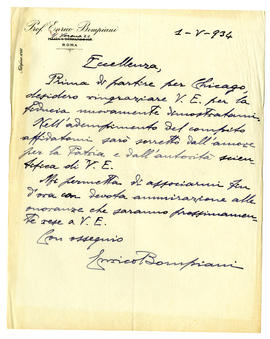 Prof. Enrico Bompiani
ROMA
1-V-934
Eccellenza,
Prima di partire per Chicago,
desidero ringraziare V. E. per la
fiducia nuovamente dimostratami.
Nell'adempimento del compito
affidatomi sarò sorretto dall'amore
per la Patria e dall'autorità scien-
tifica di V. E.
Mi permetta di associarmi fin
d'ora con devota ammirazione alle
onoranze che saranno prossimamen-
te rese a V. E.
Con ossequio
Enrico Bompiani